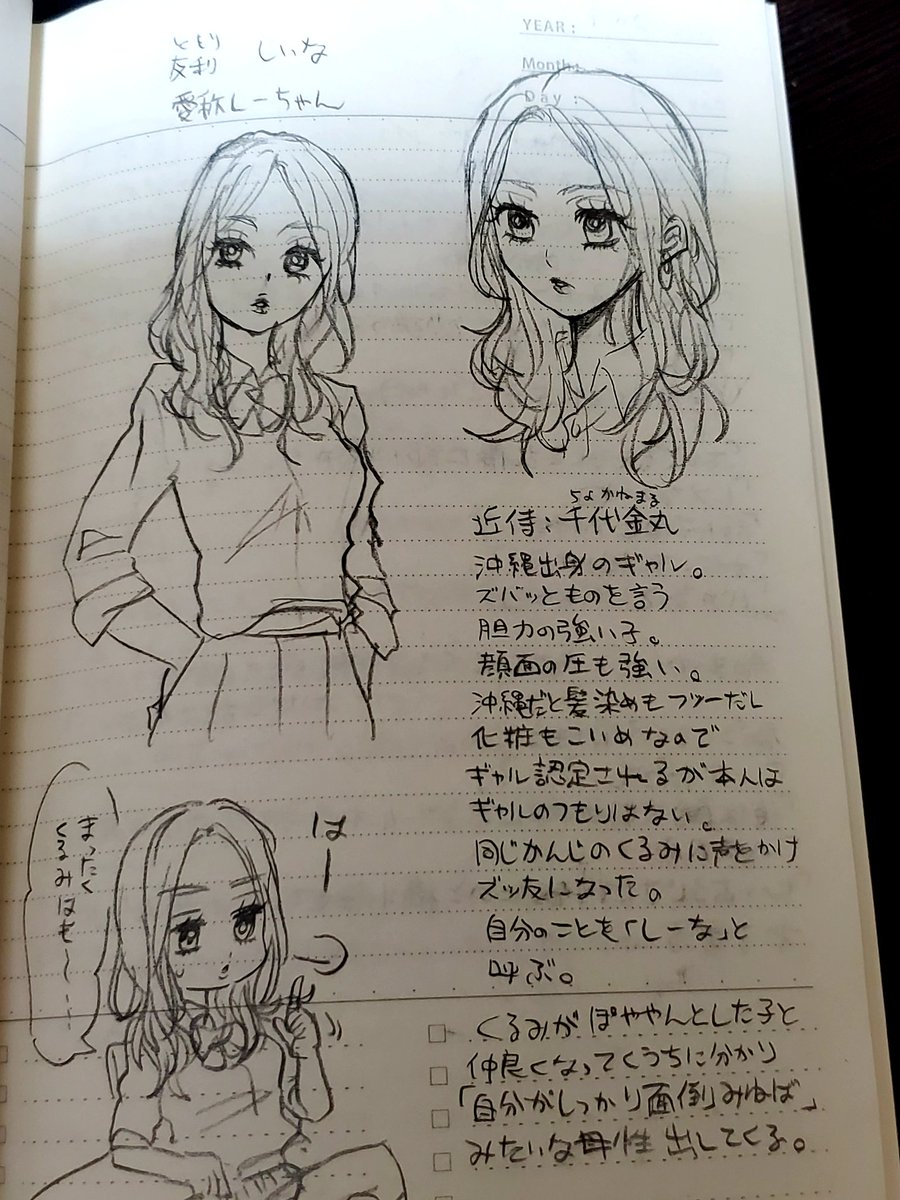 YEAR :
Month :
Day :
ともり
友利 しいな
愛称しーちゃん
ちよかねまる
近侍：千代金丸
沖縄出身のギャル。
ズバッとものを言う
胆力の強い子。
顔面の圧も強い。
沖縄だと髪染めもフツーだし
化粧もこいめなので
ギャル認定されるが本人は
ギャルのつもりはない。
同じかんじのくるみに声をかけ
ズッ友になった。
自分のことを「しーな」と
呼ぶ。
くるみがぽややんとした子と
仲良くなってくうちに分かり
「自分がしっかり面倒みねば」
みたいな母性出してくる。
はー
まったく
くるみはも〜…